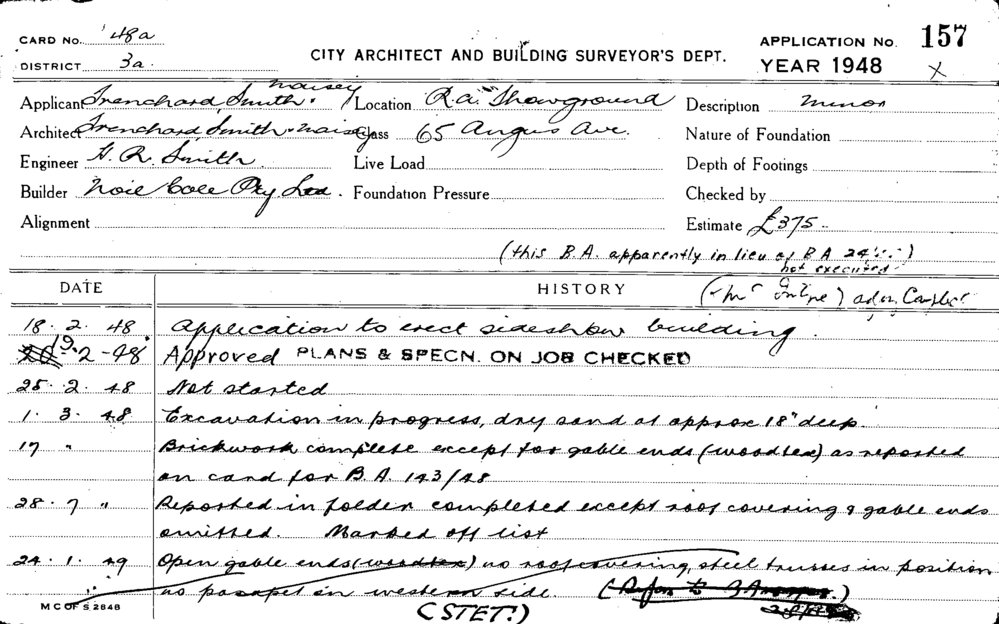 CARD No. 48a
DISTRICT 3a.
CITY ARCHITECT AND BUILDING SURVEYOR'S DEPT.
APPLICATION No. 157
YEAR 1948 X
Applicant Trenchard, Smith & Maisey Location R.A.S. Showground Description Minor
Architect Trenchard, Smith & Maisey Class 65 Angus Ave. Nature of Foundation
Engineer H. R. Smith Live Load Depth of Footings
Builder Noel Cole Pty Ltd. Foundation Pressure Checked by
Alignment Estimate £375..
(this B.A. apparently in lieu of B.A. 24
not executed
DATE HISTORY
18. 2. 48 Application to erect sideshow building.
19. 2 - 48 Approved PLANS & SPECN. ON JOB CHECKED
25. 2. 48 Not started
1. 3. 48 Excavation in progress, dry sand at approx 18" deep.
17 " Brickwork complete except for gable ends (woodtex) as reported
on card for B.A. 143/48
28. 7 " Reported in folder completed except roof covering & gable ends
omitted. Marked off list
24. 1. 49 Open gable ends (woodtex) no roof covering, steel trusses in position
no parapet on western side (Refer to
(STET.)
M C OF S 2848